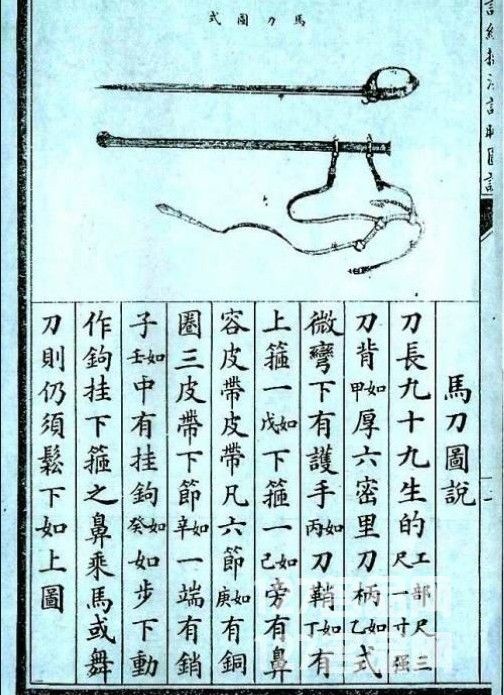 馬刀圖式
馬刀圖說
刀長九十九生的工部尺三尺一寸强
刀背如甲厚六密里刀柄如乙式
微彎下有護手如丙刀鞘如丁有
上箍一如戊下箍一如己旁有鼻
容皮帶皮帶凡六節如庚有銅
圈三皮帶下節如辛一端有銷
子如壬中有挂鉤如癸如步下動
作鉤挂下箍之鼻乘馬或舞
刀則仍須鬆下如上圖